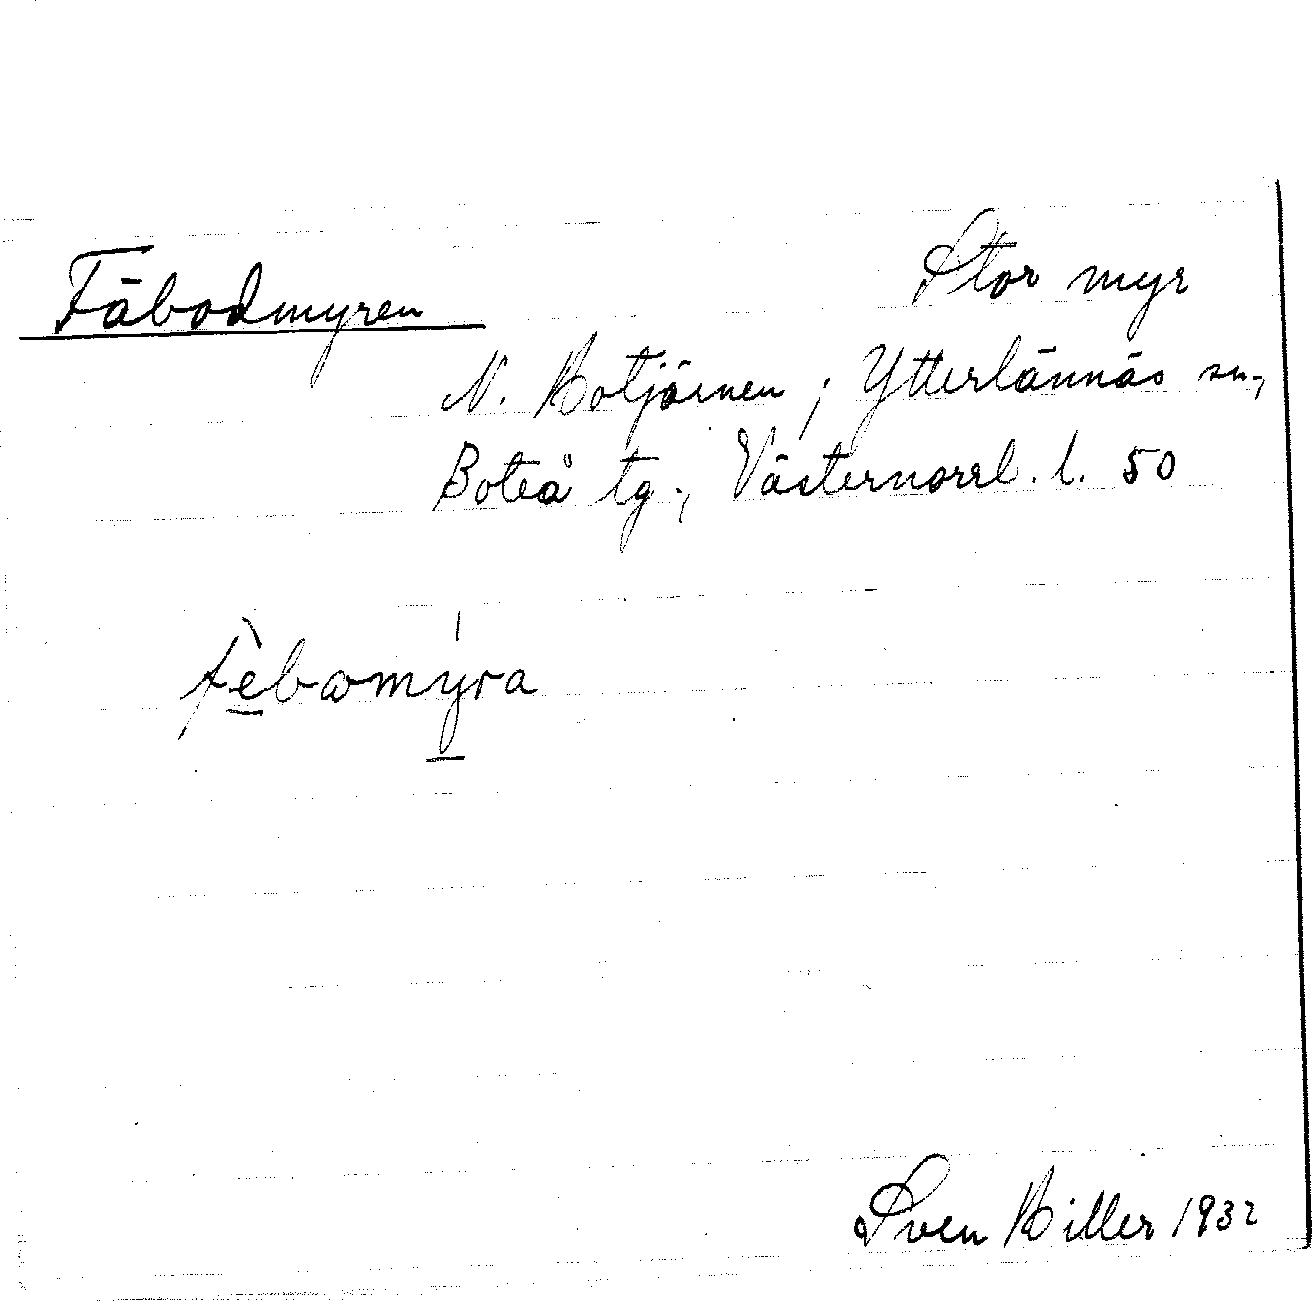 Fäbodmyren
Stor myr
N. Kotjärnen, Ytterlännäs sn,
Boteå tg, Västernorrl. l. 50
fèbomýra
Sven Killer 1932